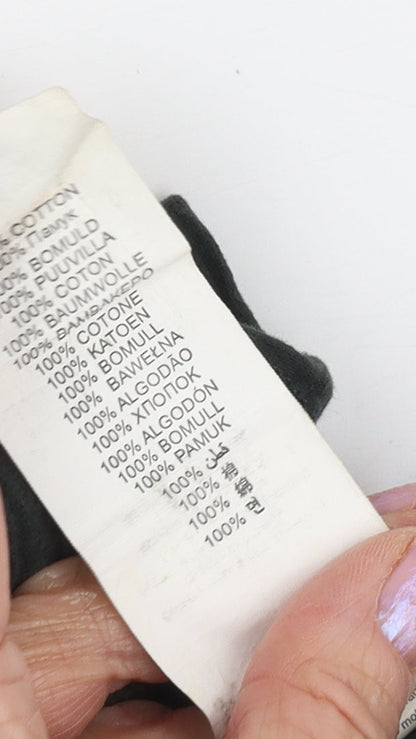 % COTTON
00% Памук
00% BOMULD
00% PUUVILLA
100% COTON
100% BAUMWOLLE
100% ΒΑΜΒΑΚΕΡΟ
100% COTONE
100% KATOEN
100% BOMULL
100% BAWEŁNA
100% ALGODÃO
100% ХЛОПОК
100% ALGODÓN
100% BOMULL
100% PAMUK
100% قطن
100% 棉
100% 綿
100% 면